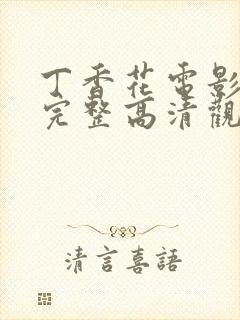 丁香花電影
完整高清觀
清言喜語